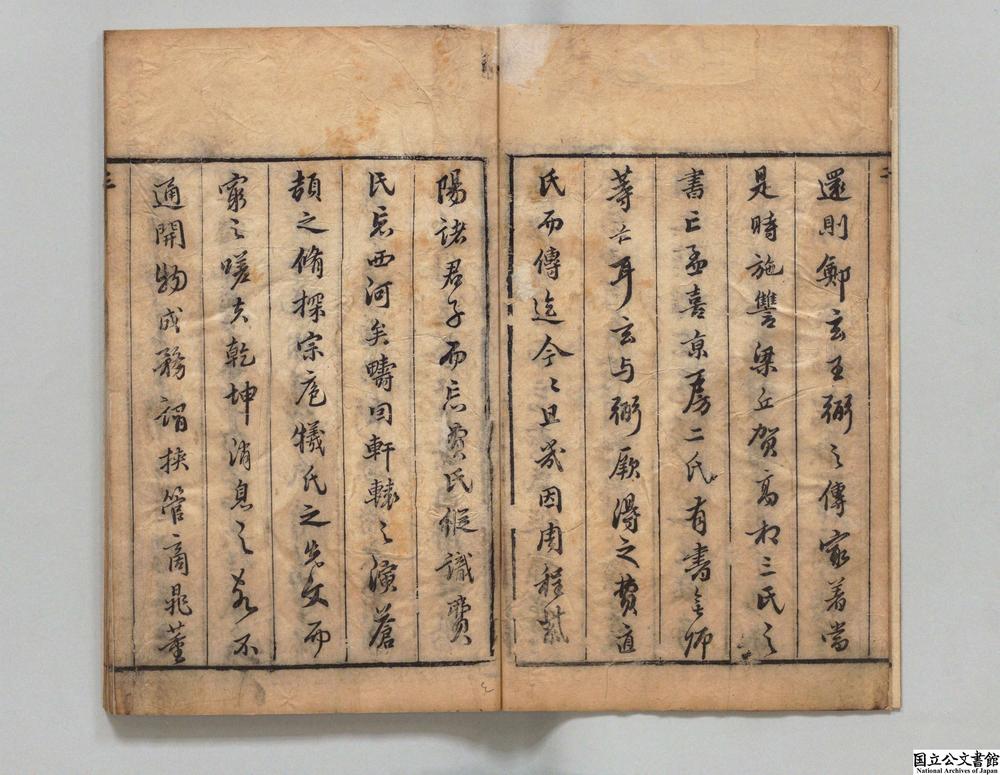 還則鄭玄王弼之傳家著當
是時施讐梁丘賀高相三氏之
書亡孟喜京房二氏有書無師
等亡耳玄与弼厥得之費直
氏而傳迄今〻且幾因周程
陽諸君子而忘費氏縱識費
氏忘西河矣疇回軒轅之演蒼
頡之脩探宗庖犧氏之先文而
窮之嗟夫乾坤消息之不
通開物成務謂挾管商晁董
二
三
国立公文書館
National Archives of Japan